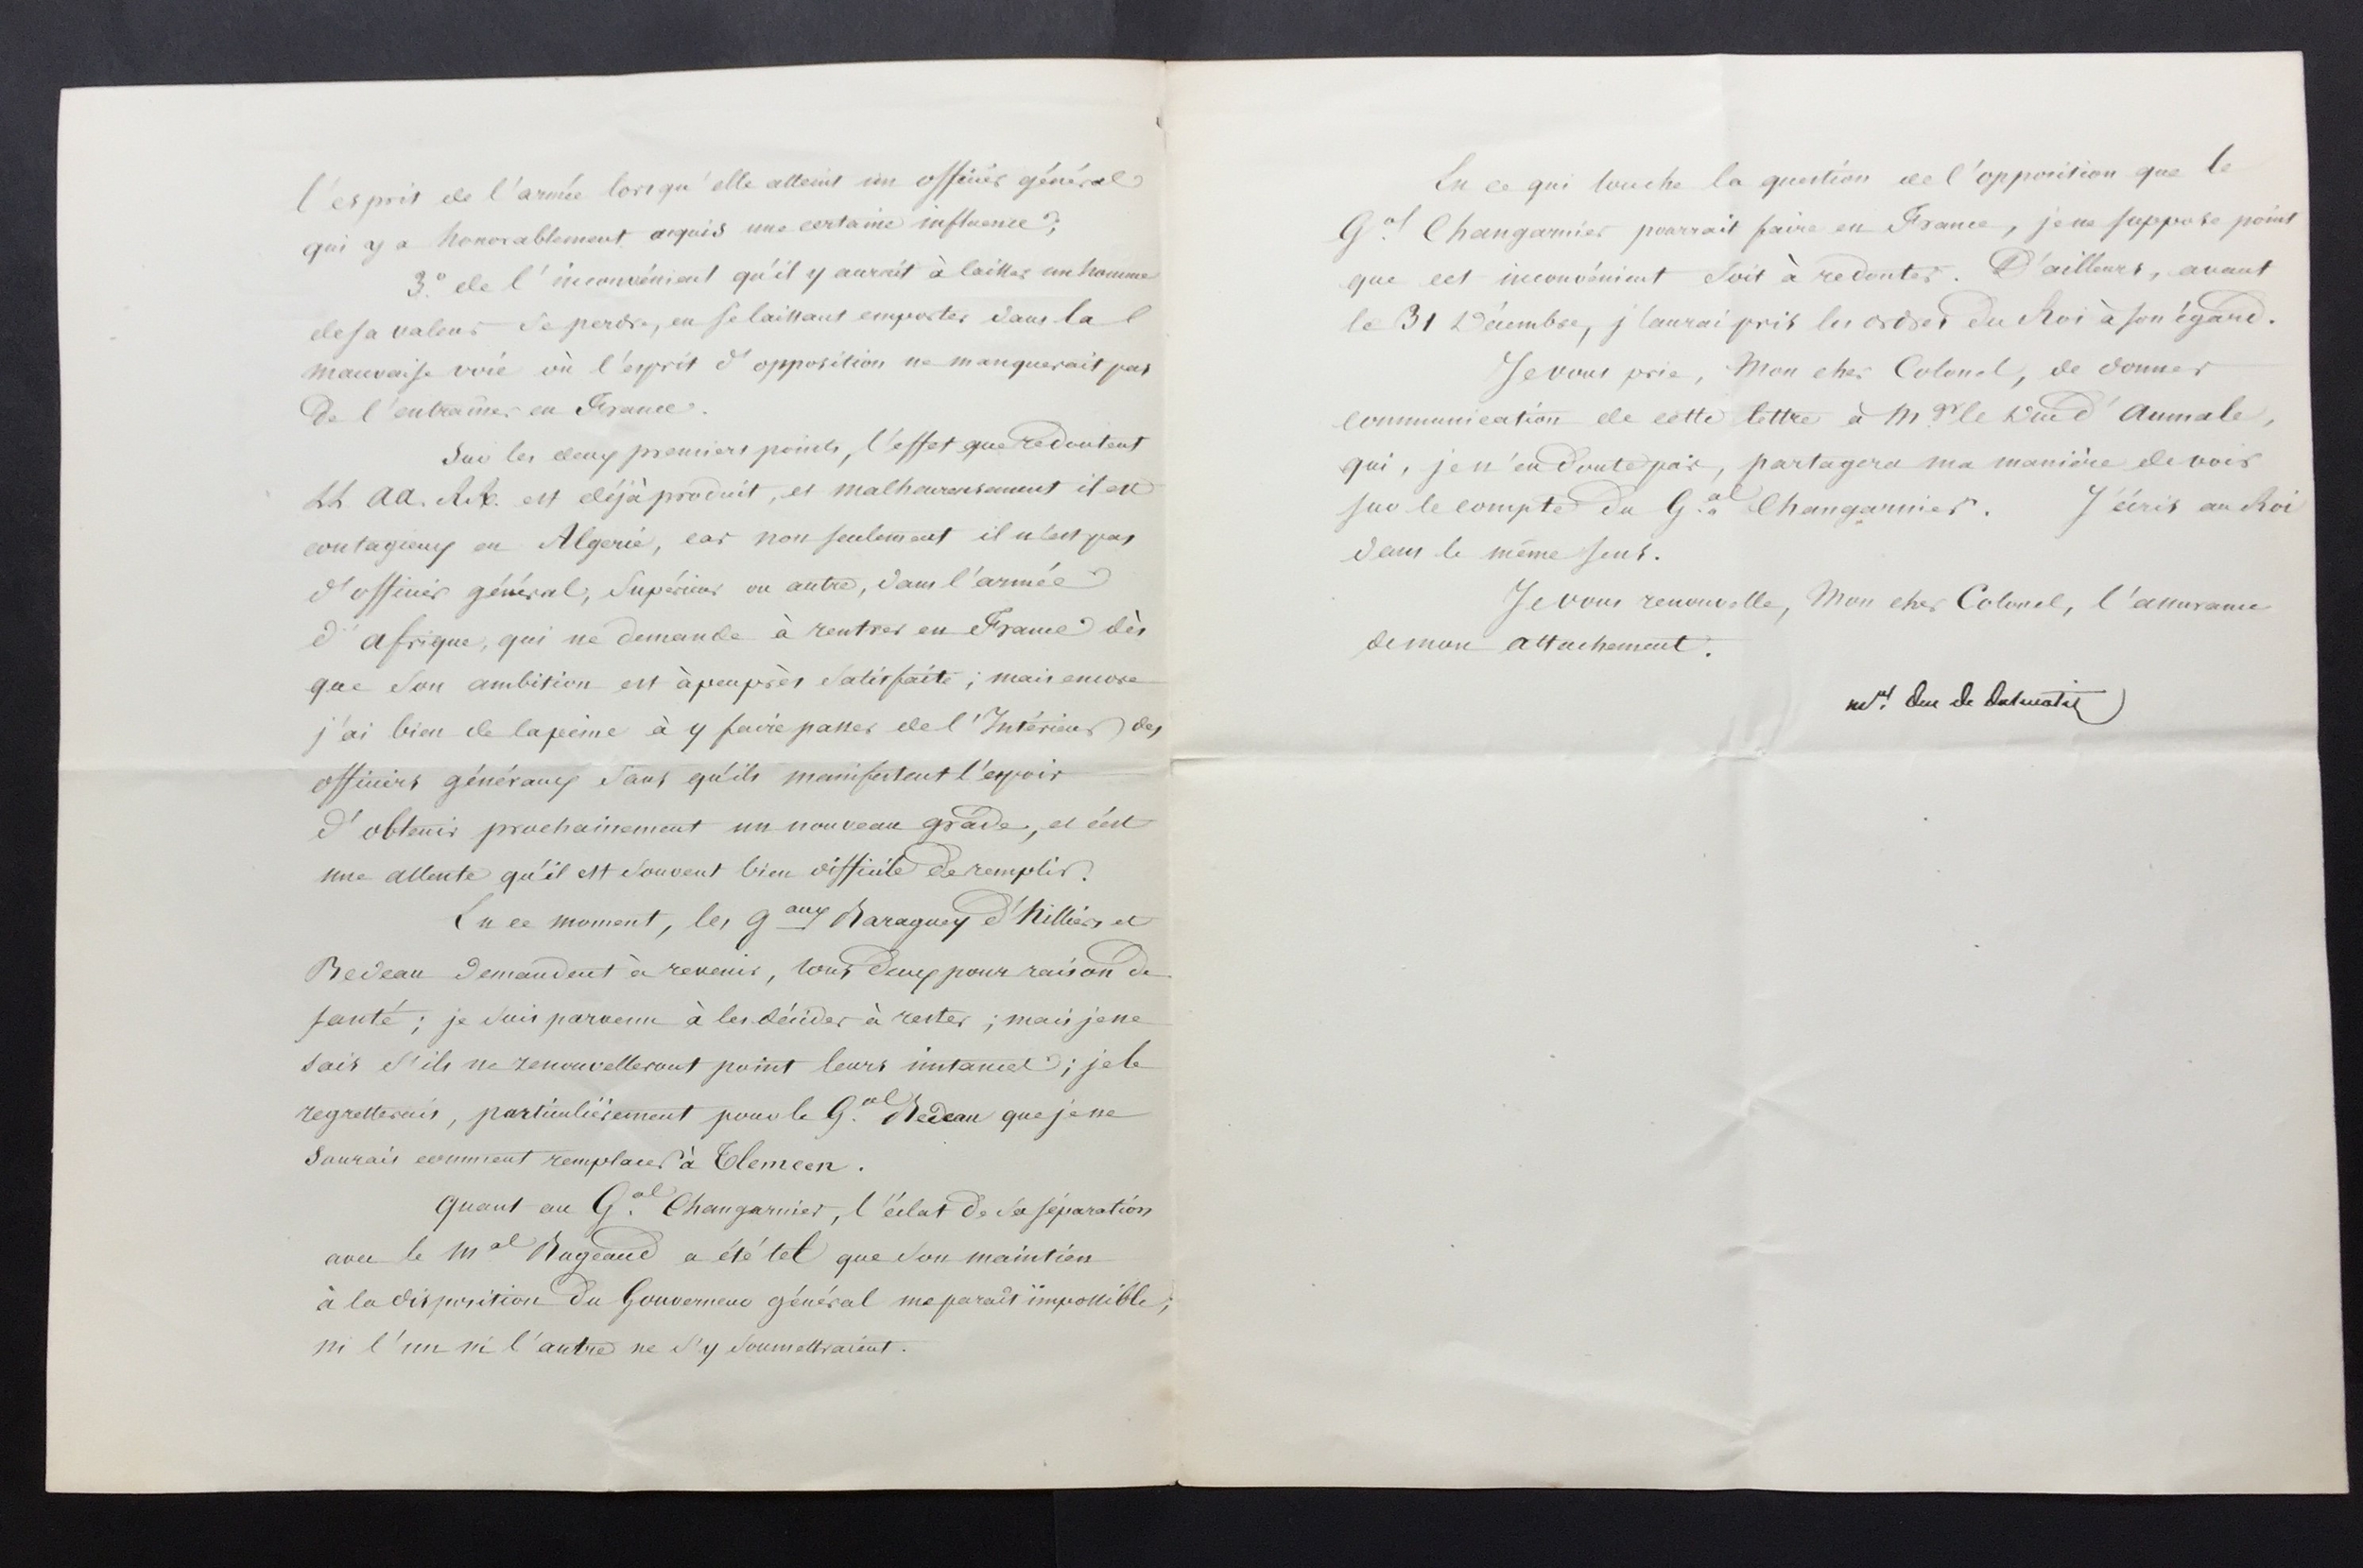 l'esprit de l'armée lorsqu'elle atteint un officier général
qui y a honorablement acquis une certaine influence;
3.° de l'inconvénient qu'il y aurait à laisser un homme
de sa valeur se perdre, en se laissant emporter dans la
mauvaise voie où l'esprit d'opposition ne manquerait pas
de l'entraîner en France.
Sur les deux premiers points, l'effet que redoutent
LL. AA. RR. est déjà produit, et malheureusement il est
contagieux en Algérie, car non seulement il n'est pas
d'officier général, Supérieur ou autre, dans l'armée
d'afrique, qui ne demande à rentrer en France dès
que son ambition est à peu près satisfaite; mais encore
j'ai bien de la peine à y faire passer de l'Intérieur des
officiers généraux sans qu'ils manifestent l'espoir
d'obtenir prochainement un nouveau grade, et c'est
une attente qu'il est souvent bien difficile de remplir.
En ce moment, les g.aux Baraguey d'hilliers et
Bedeau demandent à revenir, tous deux pour raison de
santé; je suis parvenu à les décider à rester; mais je ne
sais s'ils ne renouvelleront point leurs instances; je le
regretterais, particulièrement pour le G.al Bedeau que je ne
saurais comment remplacer à Tlemcen.
Quant au G.al Changarnier, l'éclat de sa séparation
avec le M.al Bugeaud a été tel que son maintien
à la disposition du Gouverneur général me paraît impossible;
ni l'un ni l'autre ne s'y soumettraient.
En ce qui touche la question de l'opposition que le
G.al Changarnier pourrait faire en France, je ne suppose point
que cet inconvénient soit à redouter. D'ailleurs, avant
le 31 Décembre, j'aurai pris les ordres du Roi à son égard.
Je vous prie, Mon cher Colonel, de donner
communication de cette lettre à M.gr le Duc d'Aumale,
qui, je n'en doute pas, partagera ma manière de voir
sur le compte du G.al Changarnier. J'écris au Roi
dans le même sens.
Je vous renouvelle, Mon cher Colonel, l'assurance
de mon attachement.
M.al duc de dalmatie